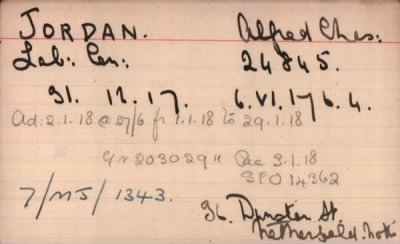 JORDAN. Alfred Chas:
Lab: Cen: 24845.
31. 12. 17. 6. VI. 17 6. 4.
Ad: 2.1.18 @ 27/6 fr 1.1.18 to 29.1.18
203029 Pac 3.1.18
SFO 14362
7/MS/1343.
36. Dunster St.
Netherfield. Notts